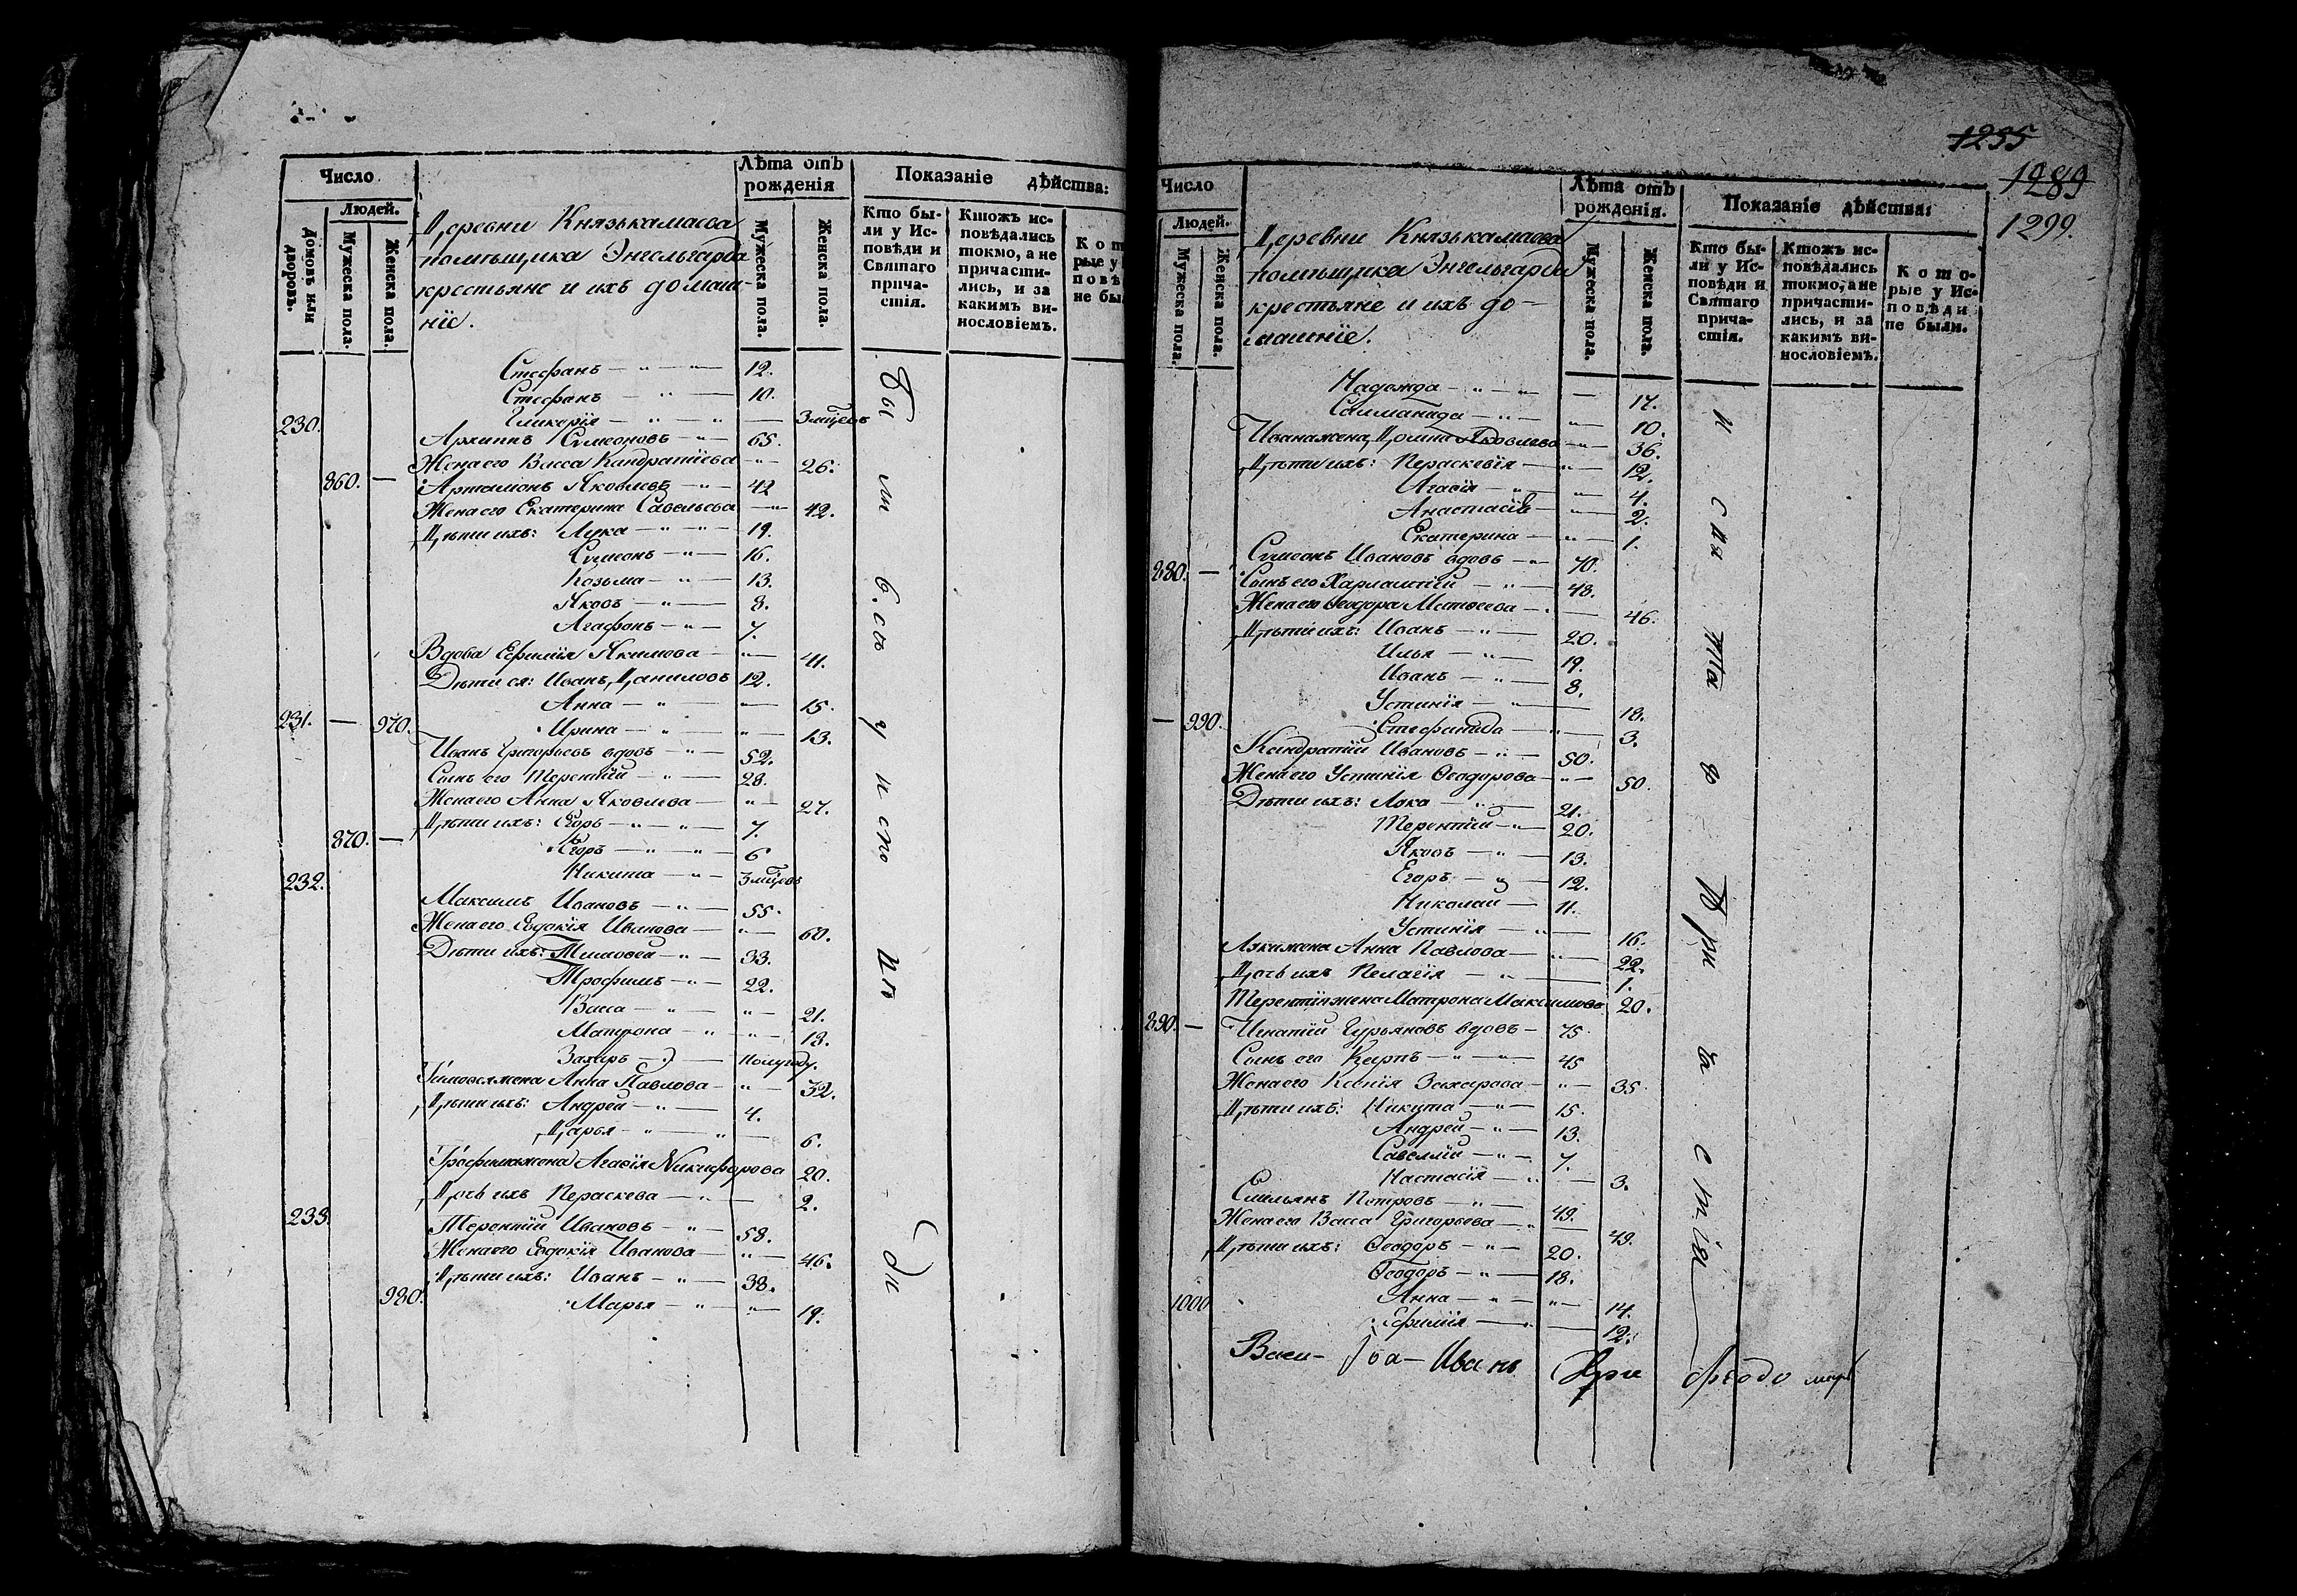 Число
Людей.
Домовъ или дворовъ.
Мужеска пола.
Женска пола.
Деревни Князькамаева
помѣщика Энгельгарда
крестьяне и ихъ домаш-
ніе.
Лѣта отъ рожденія
Мужеска пола.
Женска пола.
Показаніе дѣйства:
Кто бы-
ли у Ис-
повѣди и
Святаго
прича-
стія.
Ктожъ ис-
повѣдались
токмо, а не
причасти-
лись, и за
какимъ ви-
нословіемъ.
Стефанъ — " — 12.
Стефанъ — " — 10.
Гликерія — " — " — 3 мцевъ
230. Архипъ Симеоновъ — " — 65.
Жена его Васса Кандратіева — " — 26.
860. — Артамонъ Яковлевъ — " — 42
Жена его Екатерина Савельева — " — 42.
Дѣти ихъ: Лука — " — " — 19.
Симеонъ — " — 16.
Козьма — " — 13.
Яковъ — " — 8.
Агафонъ — " — 7.
Вдова Ефимія Якимова — " — 41.
Дѣти ея: Иванъ Даниловъ 12.
Анна — " — " — 15.
231. — 970. Ирина — " — " — 13.
Иванъ Григорьевъ вдовъ — " — 52.
Сынъ его Терентій — " — 28.
Жена его Анна Яковлева — " — 27.
Дѣти ихъ: Егоръ — " — " — 7.
870. — Егоръ — " — " — 6
Никита — " — 3 мцевъ
232. Максимъ Ивановъ — " — 55.
Жена его Евдокія Иванова — " — 60.
Дѣти ихъ: Тимофей — " — 33.
Трофимъ — " — 22.
Васса — " — " — 21.
Матрона — " — " — 13.
Захаръ — полугоду.
Тимофея жена Анна Павлова — " — 32.
Дѣти ихъ: Андрей — " — 4.
Дарья — " — " — 6.
Трофима жена Агафія Никифорова 20.
Дочь ихъ Пераскева — " — 2.
233. Терентій Ивановъ — " — 58.
Жена его Евдокія Иванова — " — 46.
Дѣти ихъ: Иванъ — " — 38.
980. Марья — " — " — 19.
1255
1289
1299.
Число
Людей.
Мужеска пола.
Женска пола.
Деревни Князькамаева
помѣщика Энгельгарда
крестьяне и ихъ до-
машніе.
Лѣта отъ рожденія.
Мужеска пола.
Женска пола.
Показаніе дѣйства:
Кто бы-
ли у Ис-
повѣди и
Святаго
прича-
стія.
Ктожъ ис-
повѣдались
токмо, а не
причасти-
лись, и за
какимъ ви-
нословіемъ.
Кото-
рые у Ис-
повѣди
не были.
Надежда — " — " — 17.
Саламанида — " — " — 10.
Ивана жена Домна Яковлева — " — 36.
Дѣти ихъ: Пераскевія — " — 12.
Агафія — " — " — 4.
Анастасія — " — 2.
Екатерина — " — 1.
Симеонъ Ивановъ вдовъ — " — 70.
880. — Сынъ его Харлампій — " — 48.
Жена его Феодора Матвеева — 46.
Дѣти ихъ: Иванъ — " — 20.
Илья — " — 19.
Иванъ — " — 8.
Устинія — " — 18.
— 990. Стефанида — " — 3.
Кандратій Ивановъ — " — 50.
Жена его Устинія Феодорова — " — 50.
Дѣти ихъ: Лука — " — 21.
Терентій — " — 20.
Яковъ — " — 13.
Егоръ — " — 12.
Николай — 11.
Устинія — " — 16.
Луки жена Анна Павлова — " — 22.
Дочь ихъ Пелагія — " — 1.
Терентія жена Матрона Максимова 20.
890. — Игнатій Гурьяновъ вдовъ — 75.
Сынъ его Карпъ — " — " — 45
Жена его Ксенія Захарова — " — 35.
Дѣти ихъ: Никита — " — 15.
Андрей — " — 13.
Савелій — " — 7.
Настасія — " — 3.
Емельянъ Петровъ — " — 49.
Жена его Васса Григорьева — " — 49.
Дѣти ихъ: Феодоръ — " — 20.
Феодоръ — " — 18.
1000 Анна — " — " — 14.
Ефимія — " — 12.